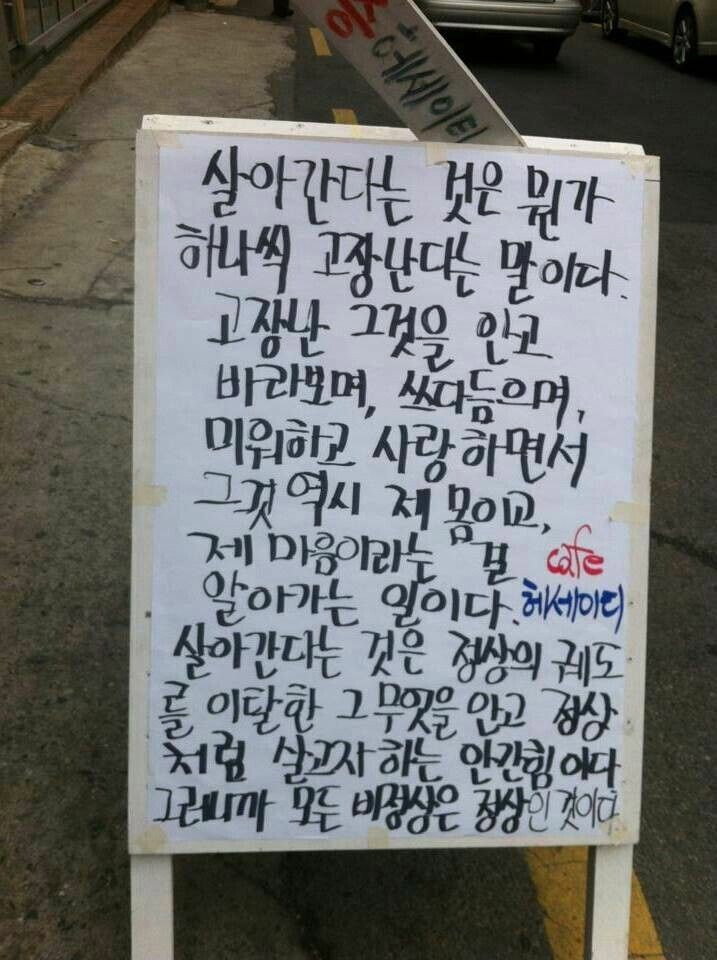 헤세이티
살아간다는 것은 뭔가
하나씩 고장난다는 말이다.
고장난 그것을 안고
바라보며, 쓰다듬으며,
미워하고 사랑하면서
그것 역시 제 몸이고,
제 마음이라는 걸
cafe
알아가는 일이다.
헤세이티
살아간다는 것은 정상의 궤도
를 이탈한 그 무엇을 안고 정상
처럼 살고자 하는 안간힘이다
그러니까 모든 비정상은 정상인 것이다